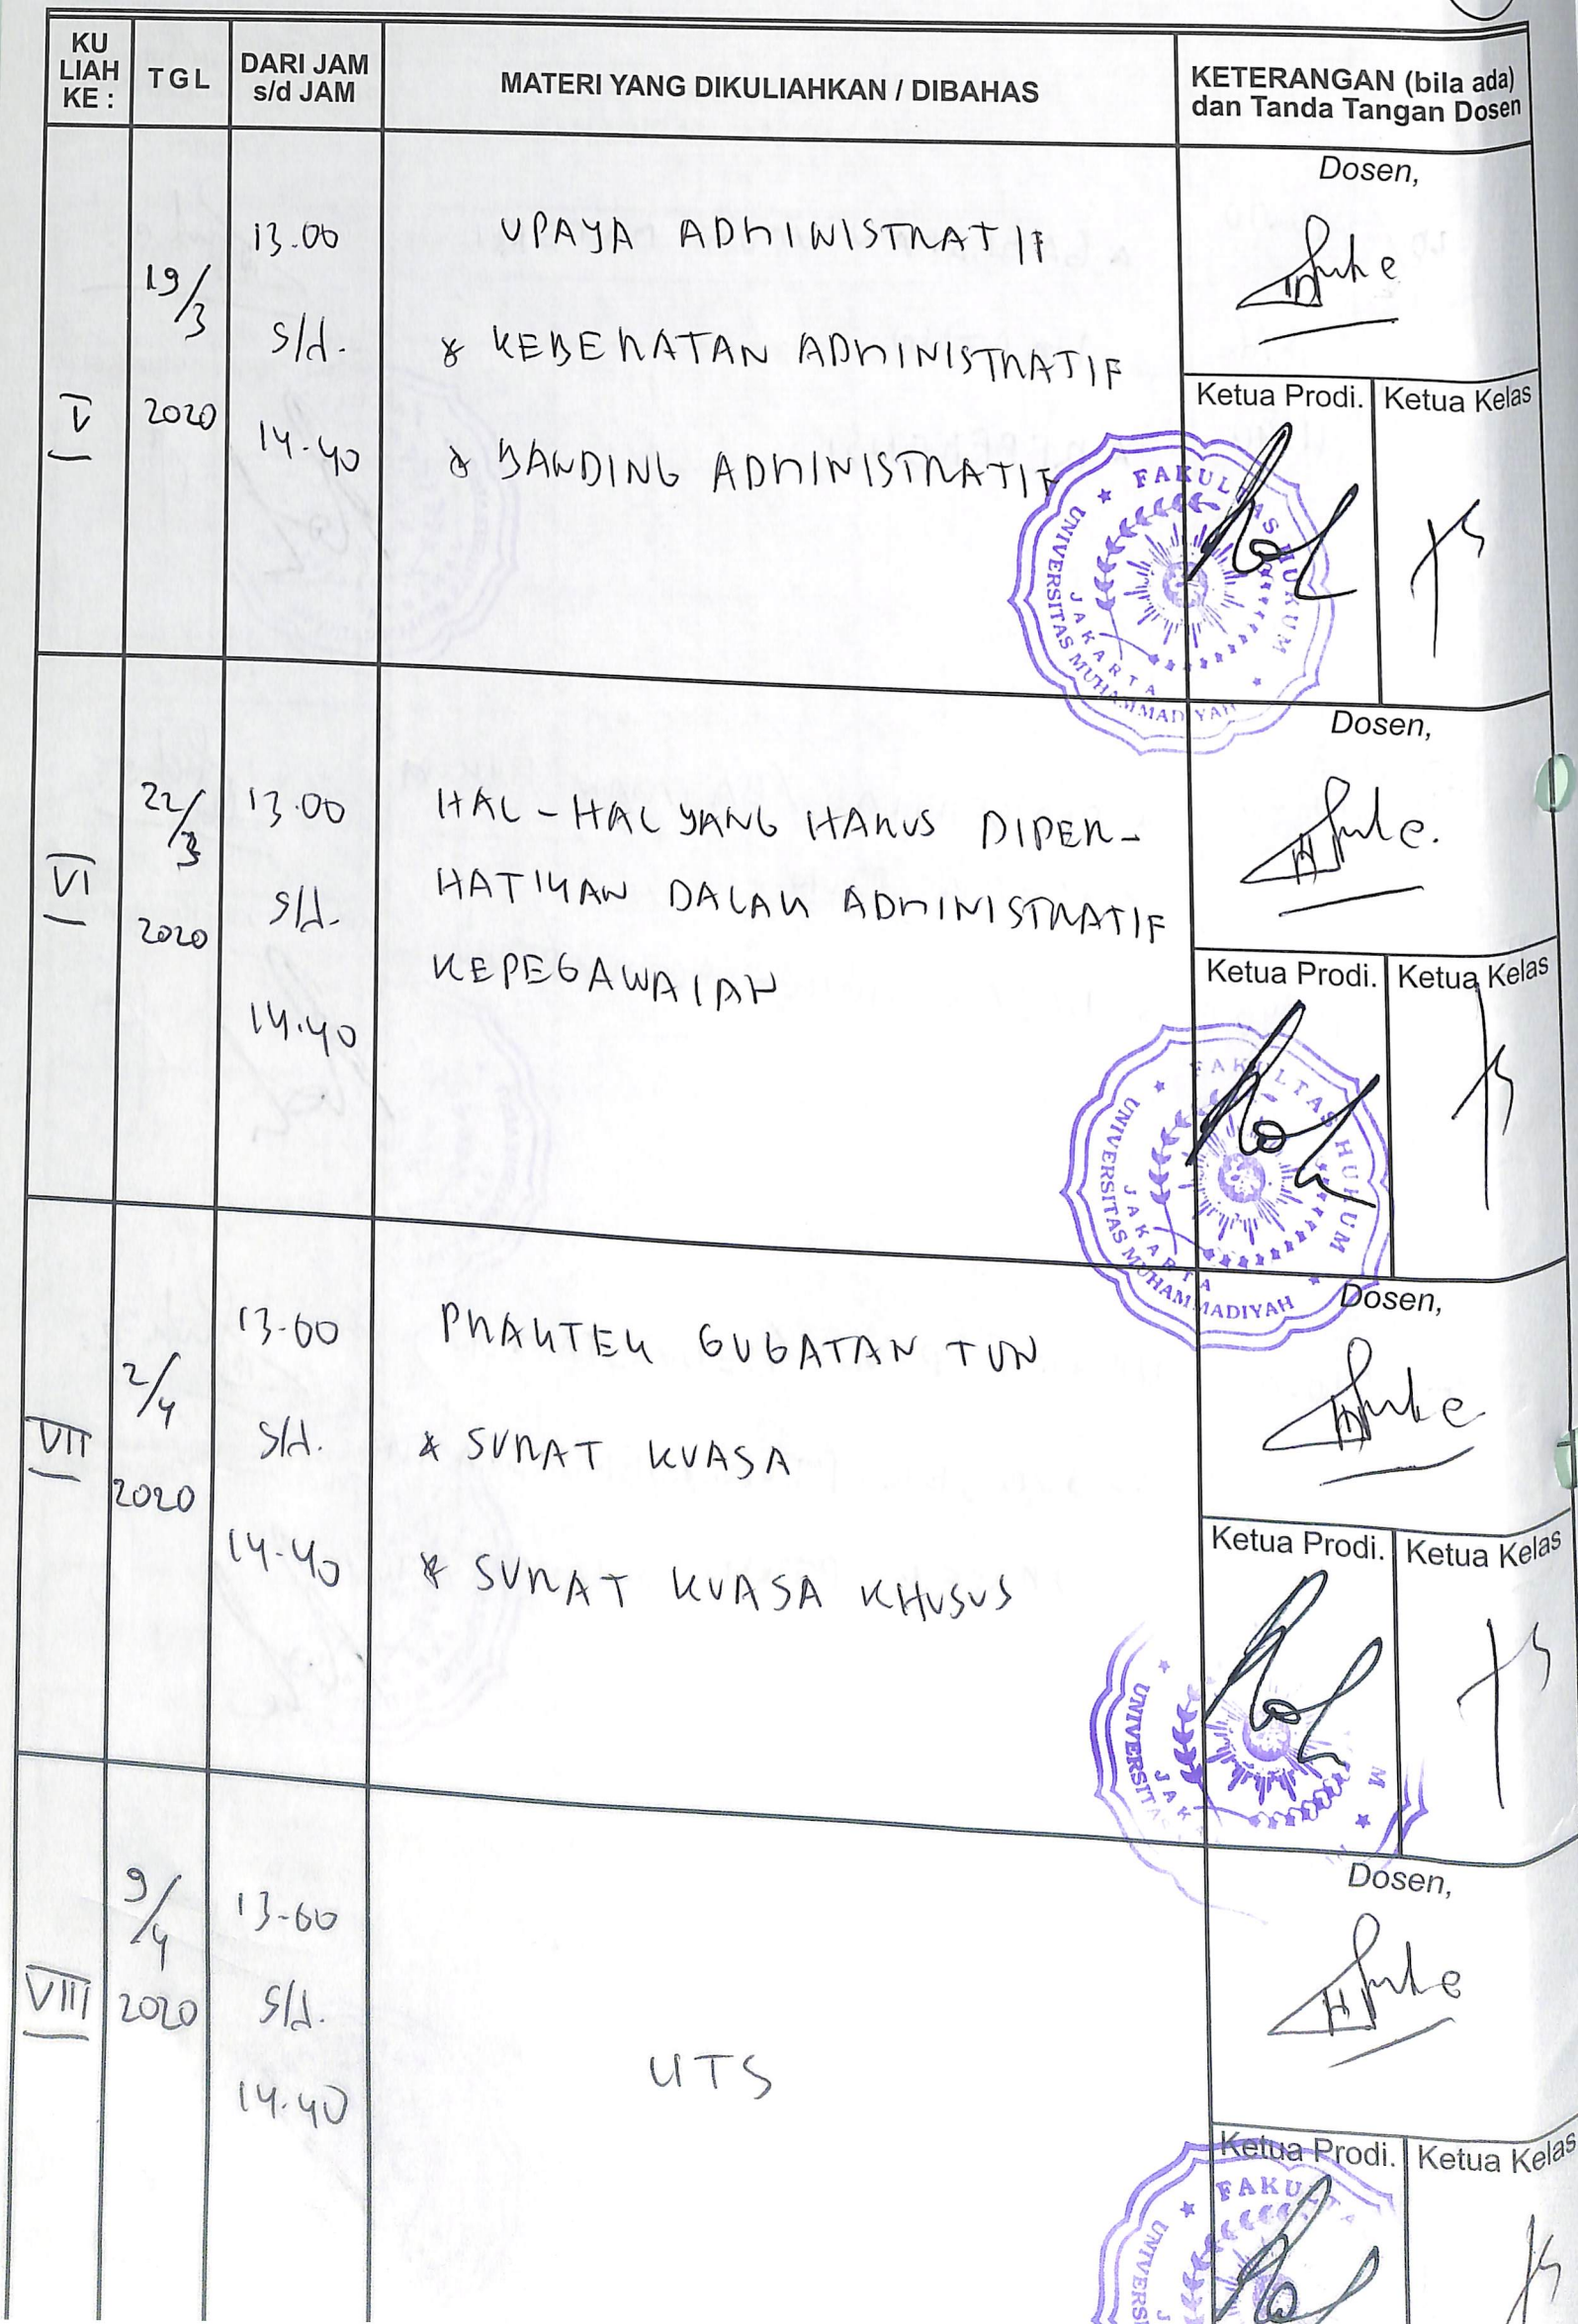 KU LIAH KE : TGL DARI JAM s/d JAM MATERI YANG DIKULIAHKAN / DIBAHAS KETERANGAN (bila ada) dan Tanda Tangan Dosen
Dosen,
V
19/3
2020
13.00
s/d.
14.40
UPAYA ADMINISTRATIF
* KEBERATAN ADMINISTRATIF
* BANDING ADMINISTRATIF
Ketua Prodi. Ketua Kelas
FAKULTAS HUKUM
UNIVERSITAS MUHAMMADIYAH
JAKARTA
Dosen,
VI
22/3
2020
13.00
s/d.
14.40
HAL-HAL YANG HARUS DIPER-
HATIKAN DALAM ADMINISTRATIF
KEPEGAWAIAN
Ketua Prodi. Ketua Kelas
FAKULTAS HUKUM
UNIVERSITAS MUHAMMADIYAH
JAKARTA
Dosen,
VII
2/4
2020
13.00
s/d.
14.40
PRAKTEK GUGATAN TUN
* SURAT KUASA
* SURAT KUASA KHUSUS
Ketua Prodi. Ketua Kelas
Dosen,
VIII
9/4
2020
13.00
s/d.
14.40
UTS
Ketua Prodi. Ketua Kelas